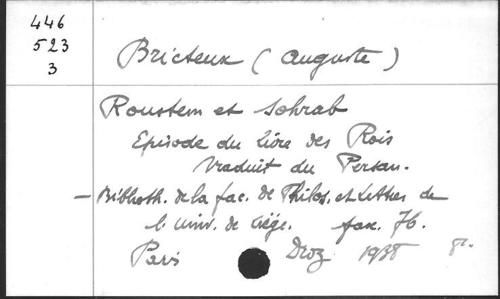 446
523
3
Bricteux (Auguste)
Roustem et Sohrab
Episode du livre des Rois
traduit du Persan.
– Biblioth. de la fac. de Philos. et Lettres de
l. univ. de Liége. fasc. 76.
Paris Droz 1938 8°.